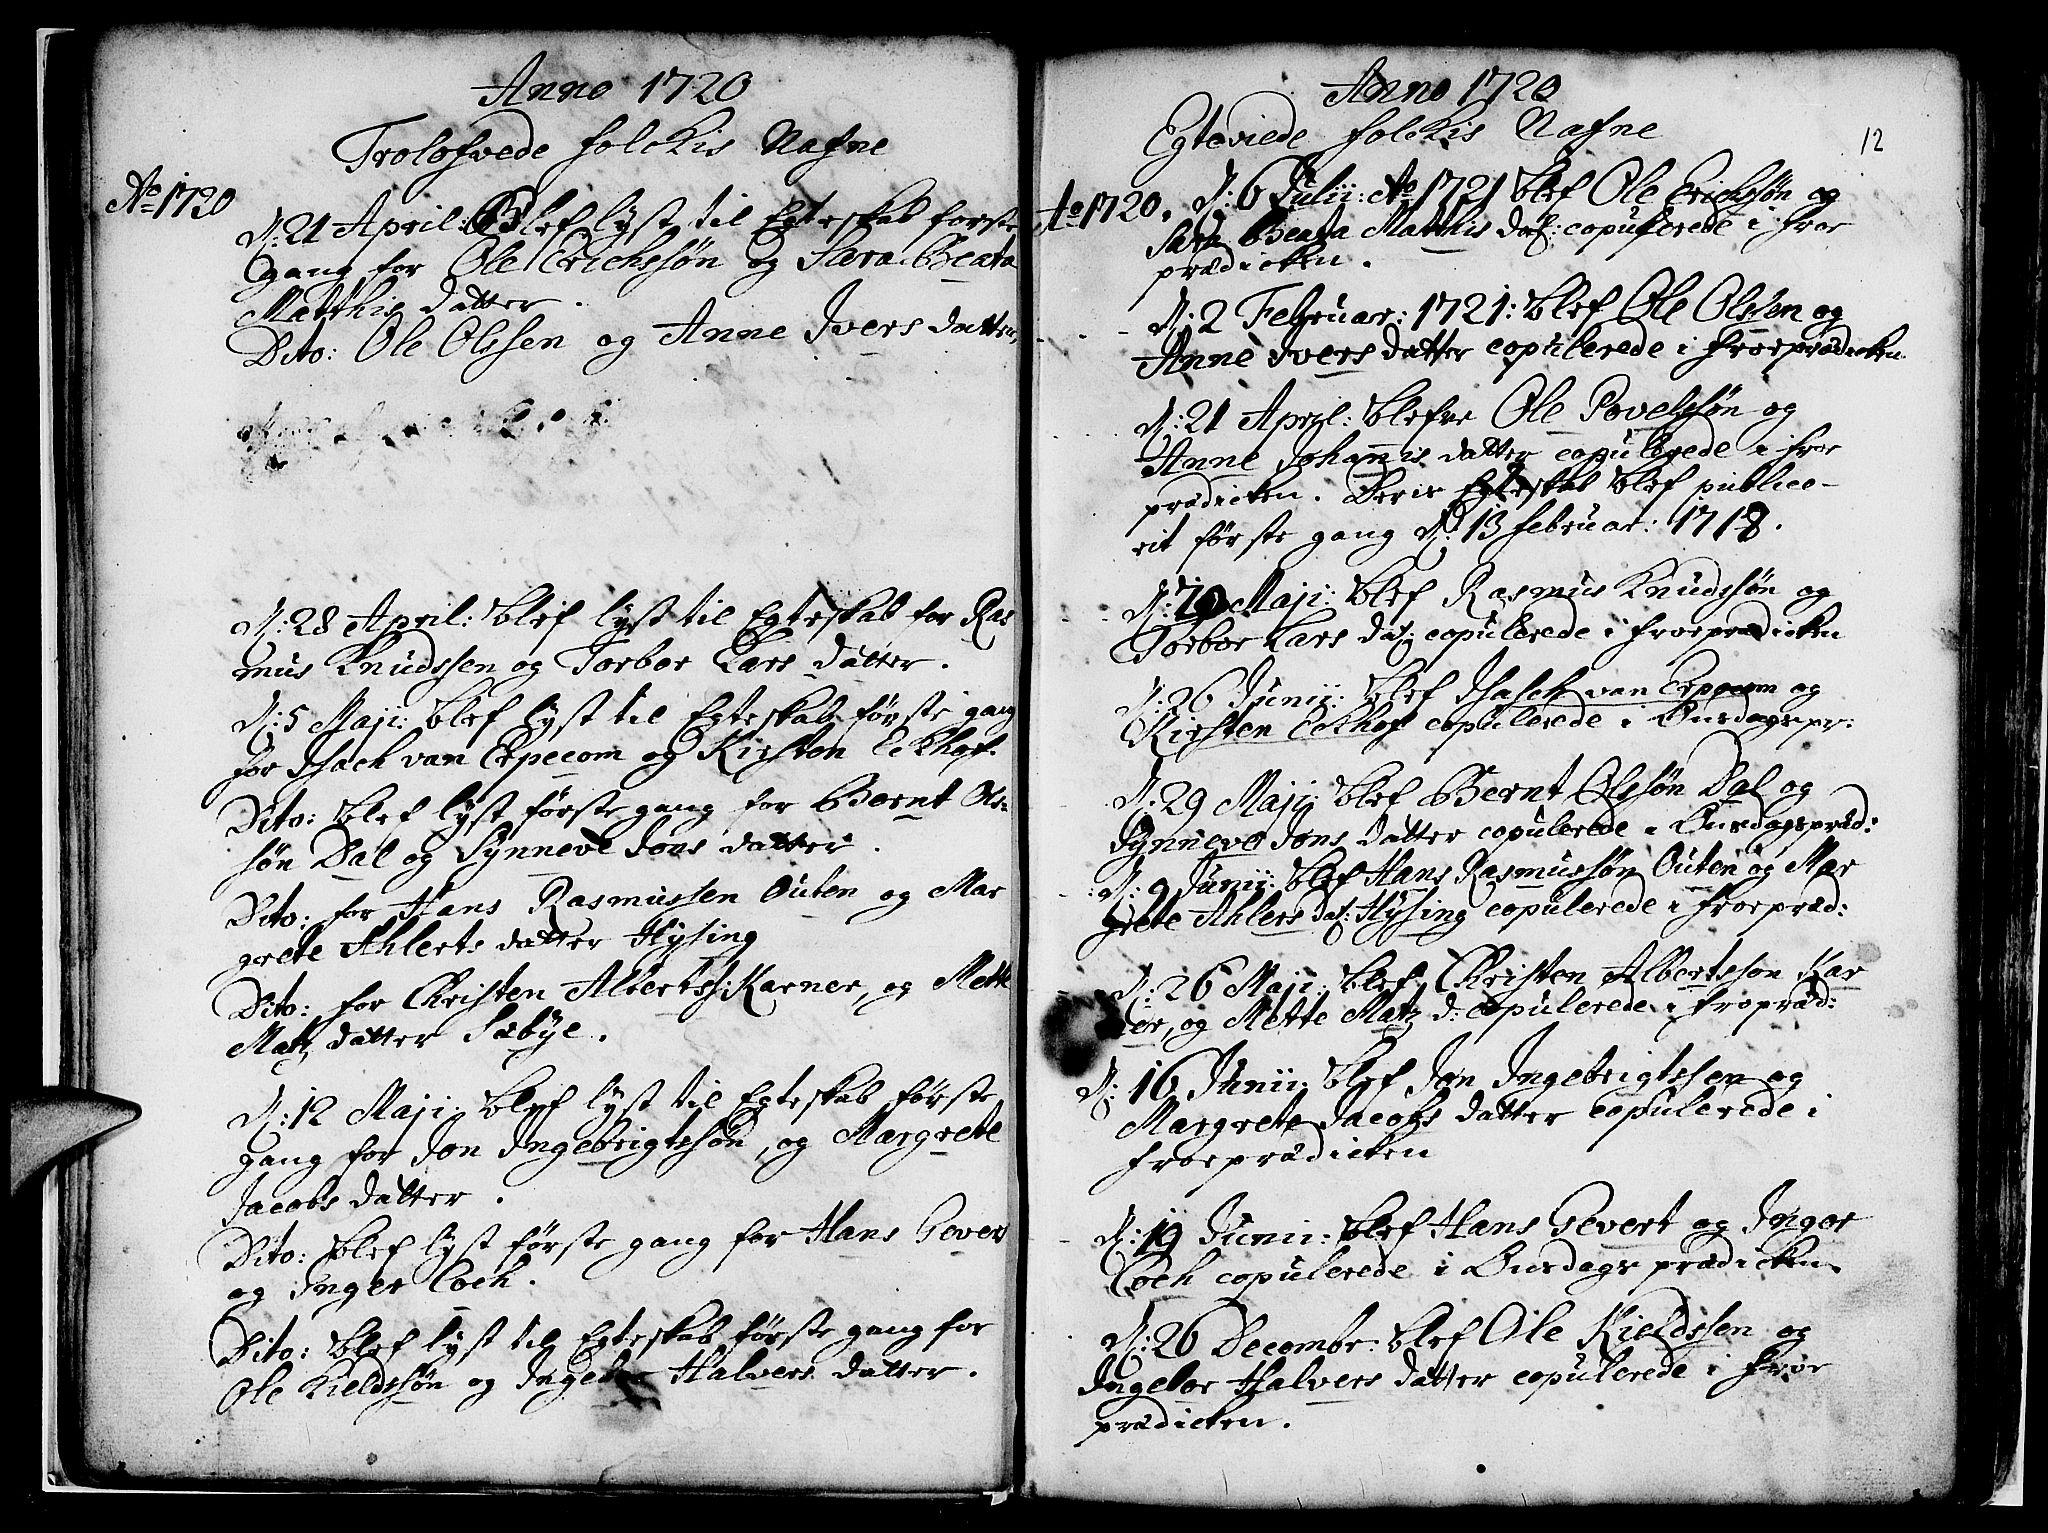 Anno 1720
Trolofvede folckis Nafne
Ao 1720
D: 21 April: Blef lyst til Egteskab første
gang for Ole Erichssøn og Sara Beata
Matthis datter.
Dito: Ole Olssen og Anne Ivers datter,
D: 28 April: blef lyst til Egteskab for Ras
mus Knudssen og Torbor Lars datter.
D: 5 Maji: blef lyst til Egteskab første gang
for Isach van Erpecom og Kirsten Eckhof.
Dito: blef lyst første gang for Bernt Ols-
søn Dal og Synneve Jons datter.
Dito: for Hans Rasmussen Outen og Mar
grete Ahlerts datter Hysing
Dito: for Christen Albertss: Karner, og Mette
Matz datter Sæbye.
D: 12 Maji: blef lyst til Egteskab første
gang for Jon Ingebrigtssøn, og Margrete
Jacobs datter.
Dito: blef lyst første gang for Hans Gevert
og Inger Coch.
Dito: blef lyst til Egteskab første gang for
Ole Kieldssøn og Ingebor Halvers datter.
Anno 1720
Egteviede folckis Nafne
12
Ao 1720. D: 6 Julii: Ao 1721 blef Ole Erichssøn og
Sara Beata Matthis dat: copulerede i froe
prædicken.
D: 2 Februar: 1721: blef Ole Olssen og
Anne Ivers datter copulerede i froeprædicken
D: 21 April: blefve Ole Povelssøn og
Anne Johannis datter copulerede i froe
prædicken. Deris Egteskab blef publice-
rit første gang D: 13 februar: 1718.
D: Maji: blef Rasmus Knudssøn og
Torbor Lars dat: copulerede i froeprædicken
D: 26 Junii: blef Isach van Erpecom og
Kirsten Eckhof copulerede i Onsdagspr:
D: 29 Maji: blef Bernt Olssøn Dal og
Synneve Jons datter copulerede i Onsdagspræd:
D: 9 Junii: blef Hans Rasmussøn Outen og Mar
grete Ahlers dat: Hysing copulerede i froepræd:
D: 26 Maji: blef Christen Albertsson Kar
ner, og Mette Matz d: copulerede i fropræd:
D: 16 Junii: blef Jon Ingebrigtssen og
Margrete Jacobs datter copulerede i
froeprædicken
D: 19 Junii: blef Hans Gevert og Inger
Coch copulerede i Onsdags prædicken.
D: 26 Decembr: blef Ole Kieldssen og
Ingebor Halvers datter copulerede i froe
prædicken.